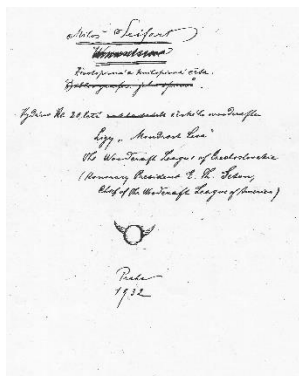 Miloš Seifert
Životopisná a knihopisná črta.
Vydáno ke 20. letí českého woodcraftu
Ligy „Moudrost Lesa"
The Woodcraft League of Czechoslovakia
(Honorary President E. Th. Seton,
Chief of the Woodcraft League of America)
Praha
1932